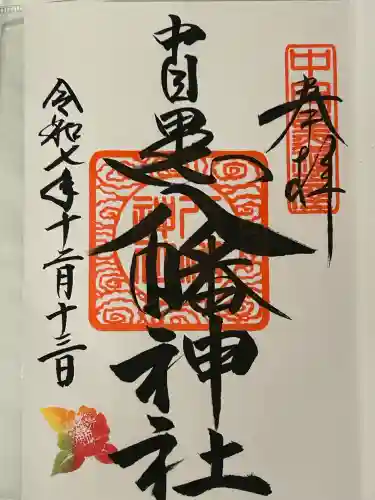 奉拝
中目黒
八幡神社
令和七年十二月十三日